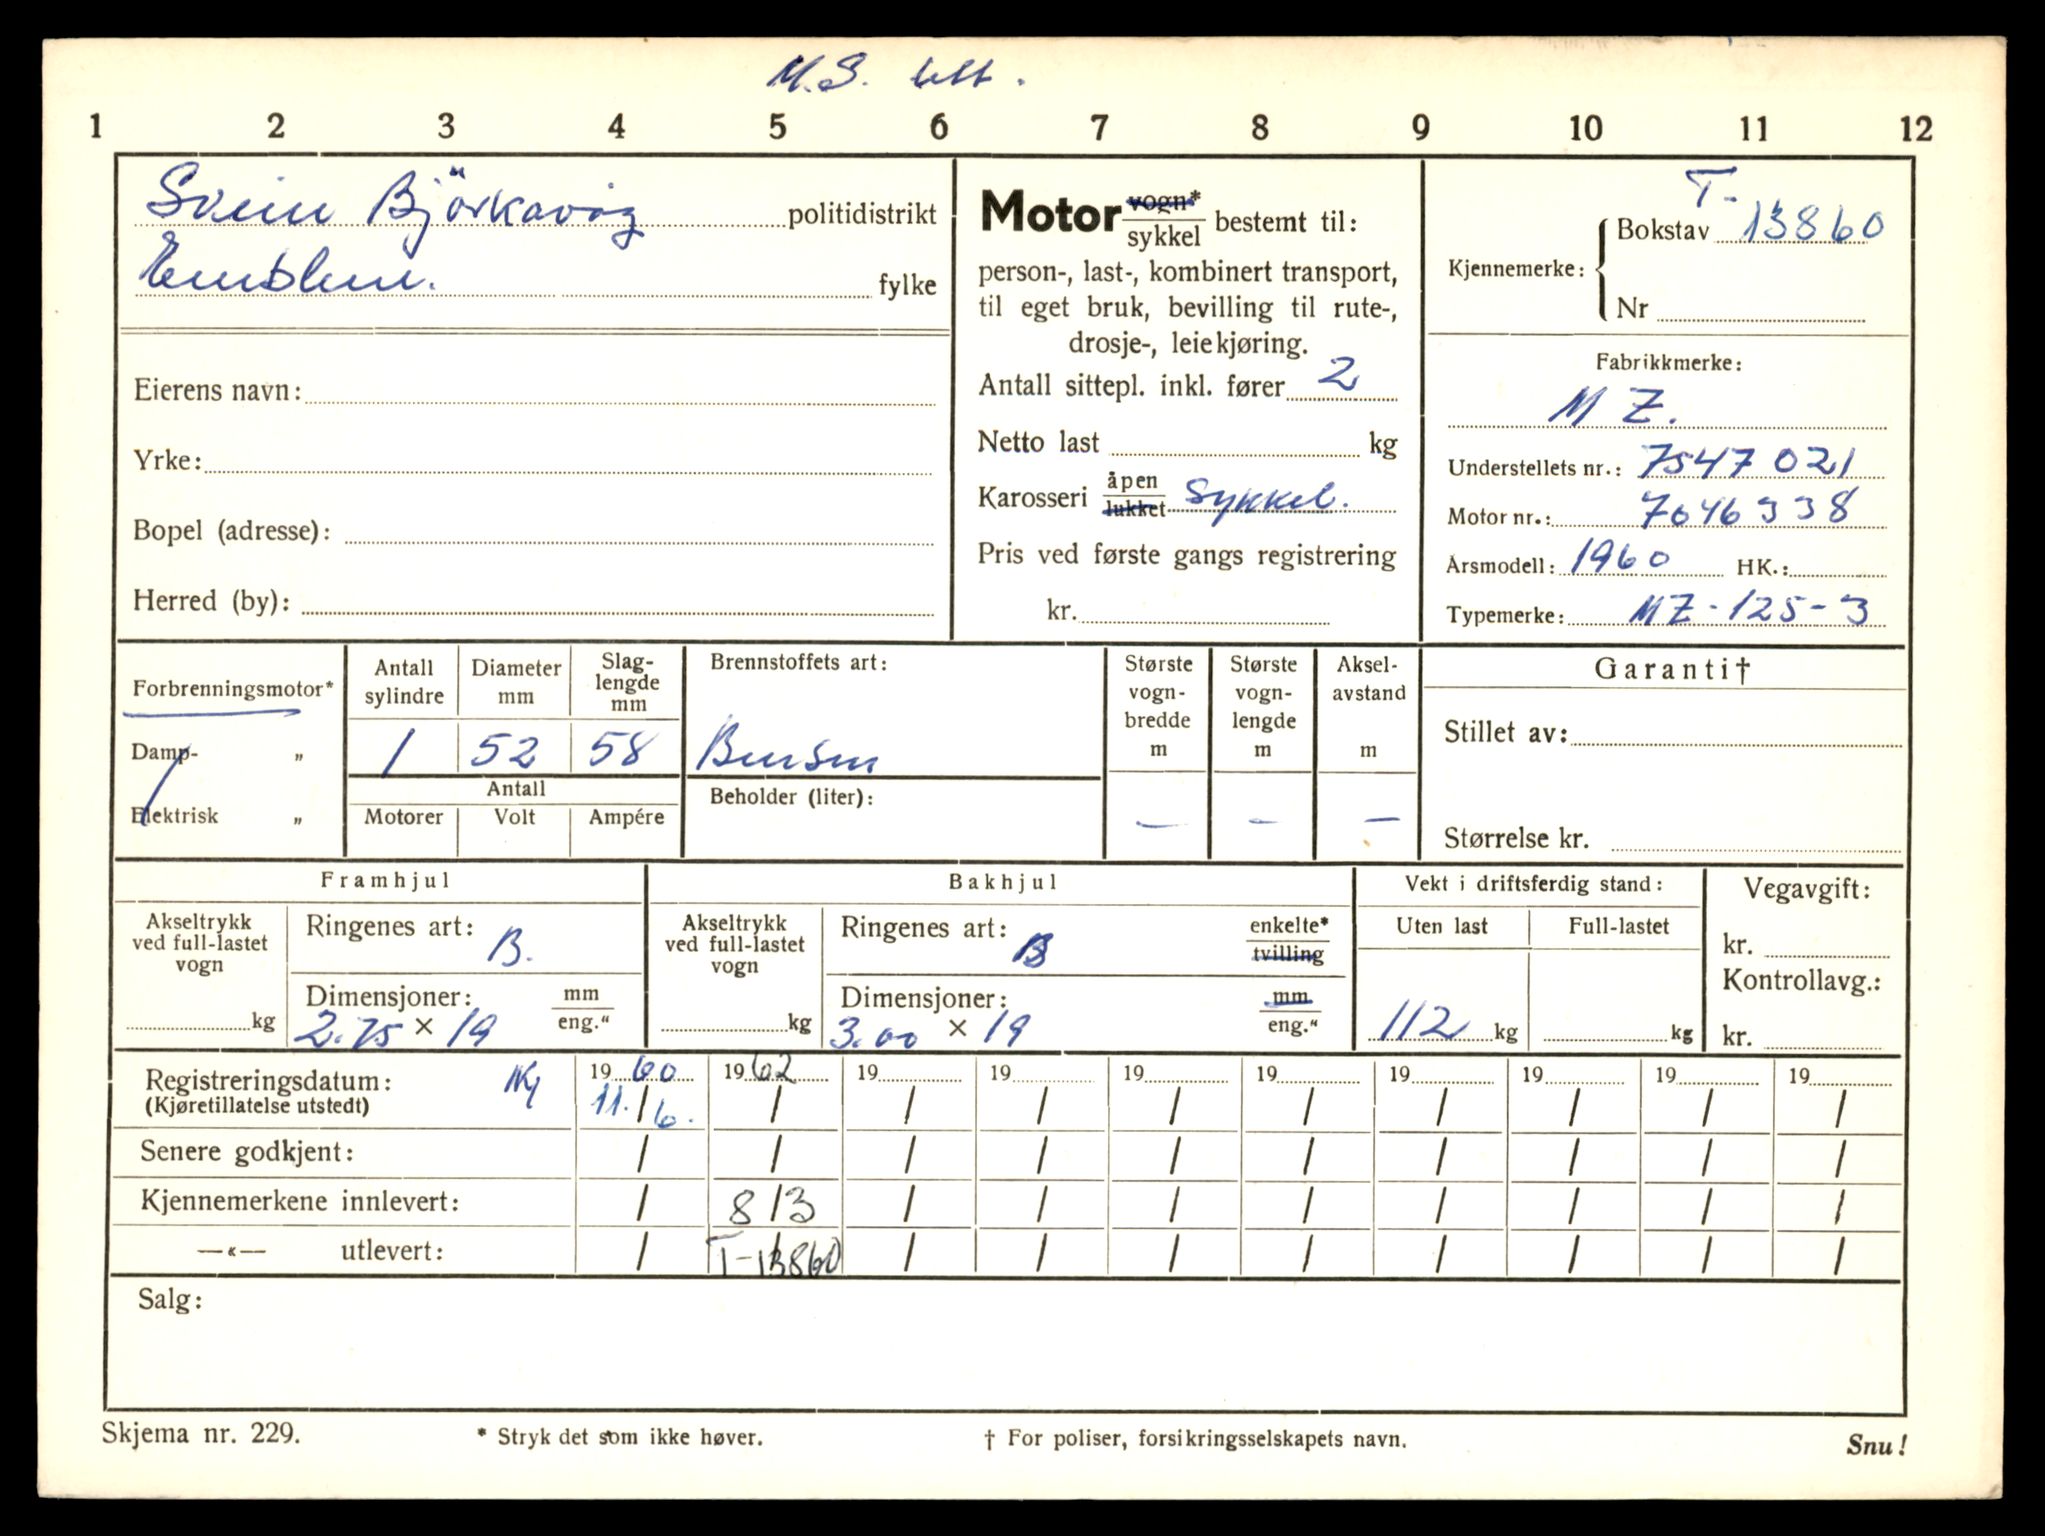 M.S. lett.
1 2 3 4 5 6 7 8 9 10 11 12
Svein Björkavåg politidistrikt
Emblem. fylke
Eierens navn:
Yrke:
Bopel (adresse):
Herred (by):
Motor vogn* sykkel bestemt til:
person-, last-, kombinert transport,
til eget bruk, bevilling til rute-,
drosje-, leiekjøring.
Antall sittepl. inkl. fører 2
Netto last kg
Karosseri åpen lukket sykkel.
Pris ved første gangs registrering
kr.
Kjennemerke: Bokstav T-13860
Nr
Fabrikkmerke:
MZ.
Understellets nr.: 7547021
Motor nr.: 7046338
Årsmodell: 1960 HK.:
Typemerke: MZ-125-3
Forbrenningsmotor*
Damp- „
Elektrisk „
Antall sylindre 1
Diameter mm 52
Slag-lengde mm 58
Antall
Motorer Volt Ampére
Brennstoffets art:
Bensin
Beholder (liter):
Største vogn-bredde m —
Største vogn-lengde m —
Aksel-avstand m —
Garanti†
Stillet av:
Størrelse kr.
Framhjul
Akseltrykk ved full-lastet vogn
kg
Ringenes art: B.
Dimensjoner: mm eng."
2.75 × 19
Bakhjul
Akseltrykk ved full-lastet vogn
kg
Ringenes art: B enkelte* tvilling
Dimensjoner: mm eng."
3.00 × 19
Vekt i driftsferdig stand:
Uten last Full-lastet
112 kg kg
Vegavgift:
kr.
Kontrollavg.:
kr.
Registreringsdatum: Ny 1960 1962 19 19 19 19 19 19 19 19
(Kjøretillatelse utstedt) 11./6. / / / / / / / / /
Senere godkjent: / / / / / / / / / /
Kjennemerkene innlevert: / 8/3 / / / / / / / /
—«— utlevert: / T-13860 / / / / / / / /
Salg:
Skjema nr. 229. * Stryk det som ikke høver. † For poliser, forsikringsselskapets navn. Snu!